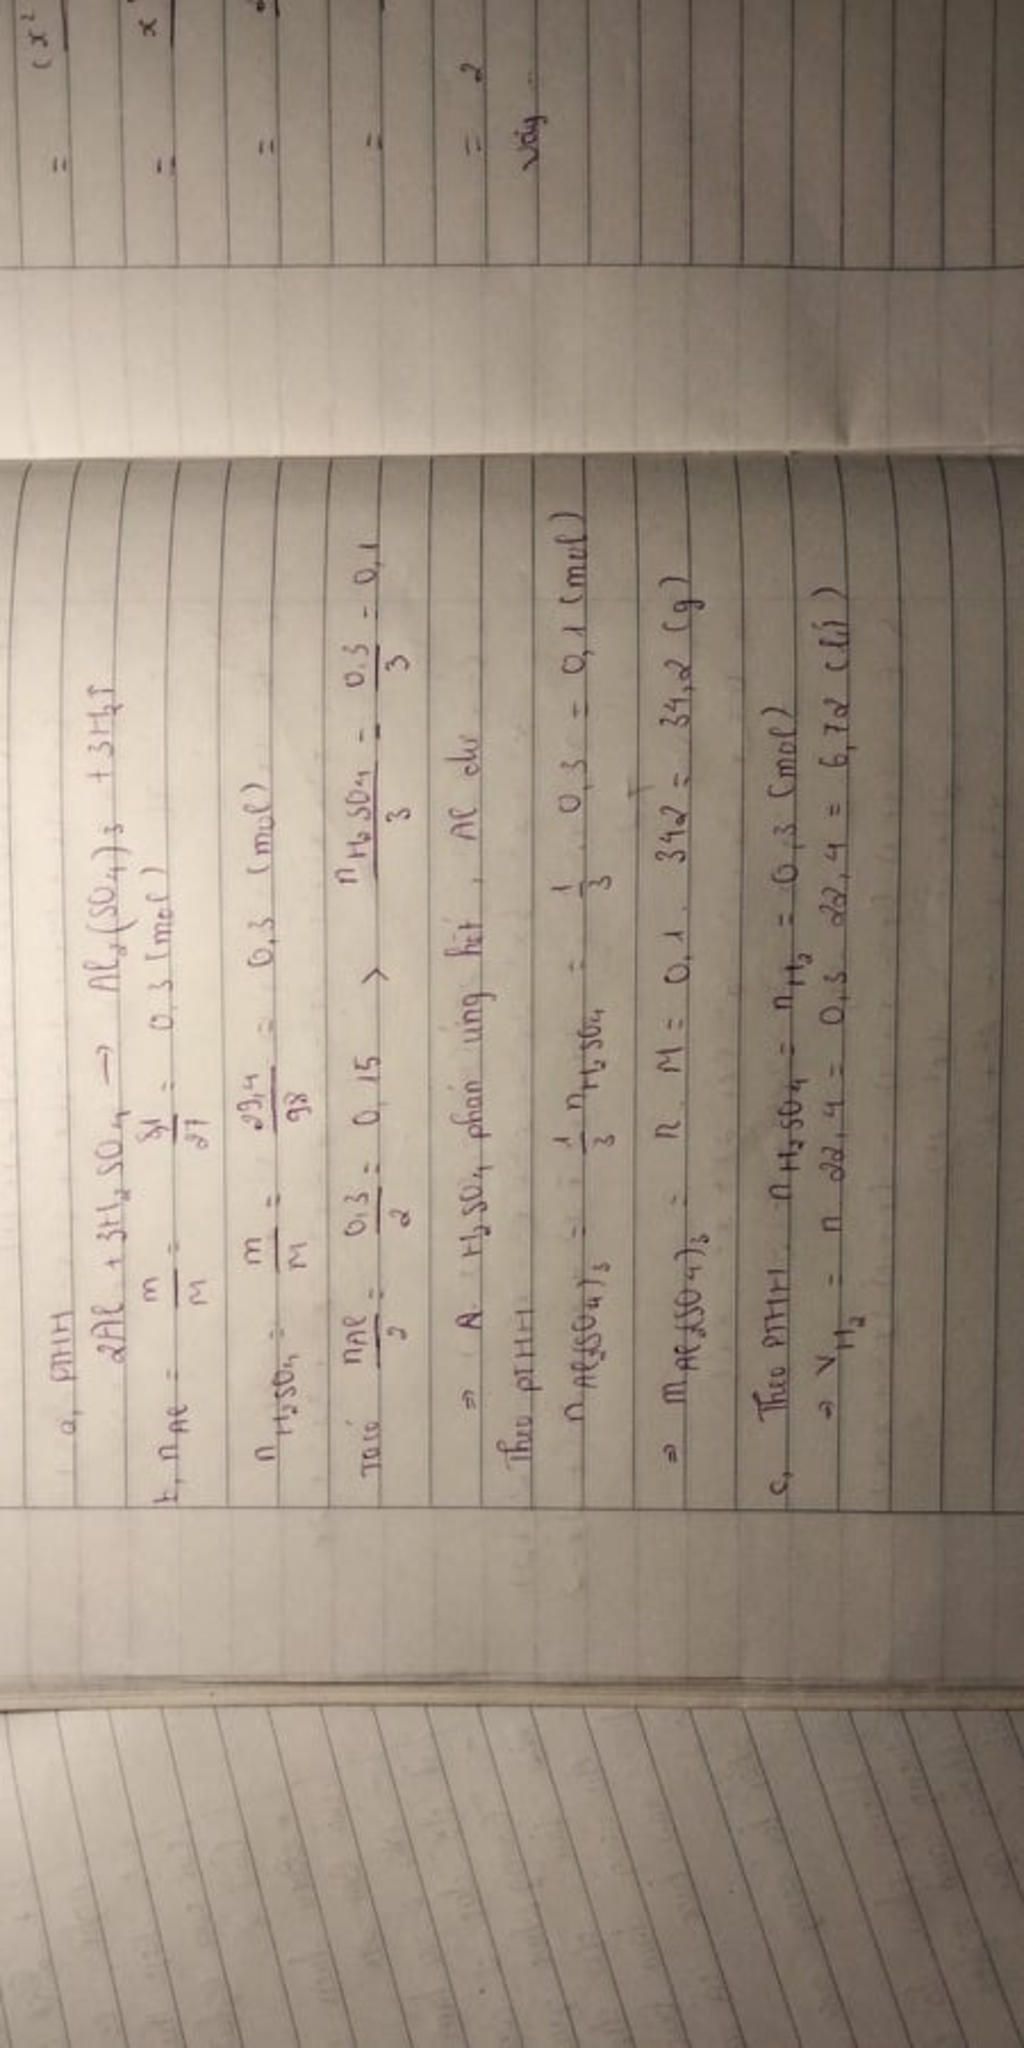 a, PTHH
2Al + 3H₂SO₄ → Al₂(SO₄)₃ + 3H₂↑
b, nAl = m/M = 8,1/27 = 0,3 (mol)
nH₂SO₄ = m/M = 29,4/98 = 0,3 (mol)
Ta có nAl/2 = 0,3/2 = 0,15 > nH₂SO₄/3 = 0.3/3 = 0,1
⇒ H₂SO₄ phản ứng hết, Al dư
Theo PTHH
nAl₂(SO₄)₃ = 1/3 nH₂SO₄ = 1/3 . 0,3 = 0,1 (mol)
⇒ mAl₂(SO₄)₃ = n . M = 0,1 . 342 = 34,2 (g)
c, Theo PTHH nH₂SO₄ = nH₂ = 0,3 (mol)
⇒ VH₂ = n 22,4 = 0,3 22,4 = 6,72 (lí)
= (x²
= x
=
=
= 2
Vậy